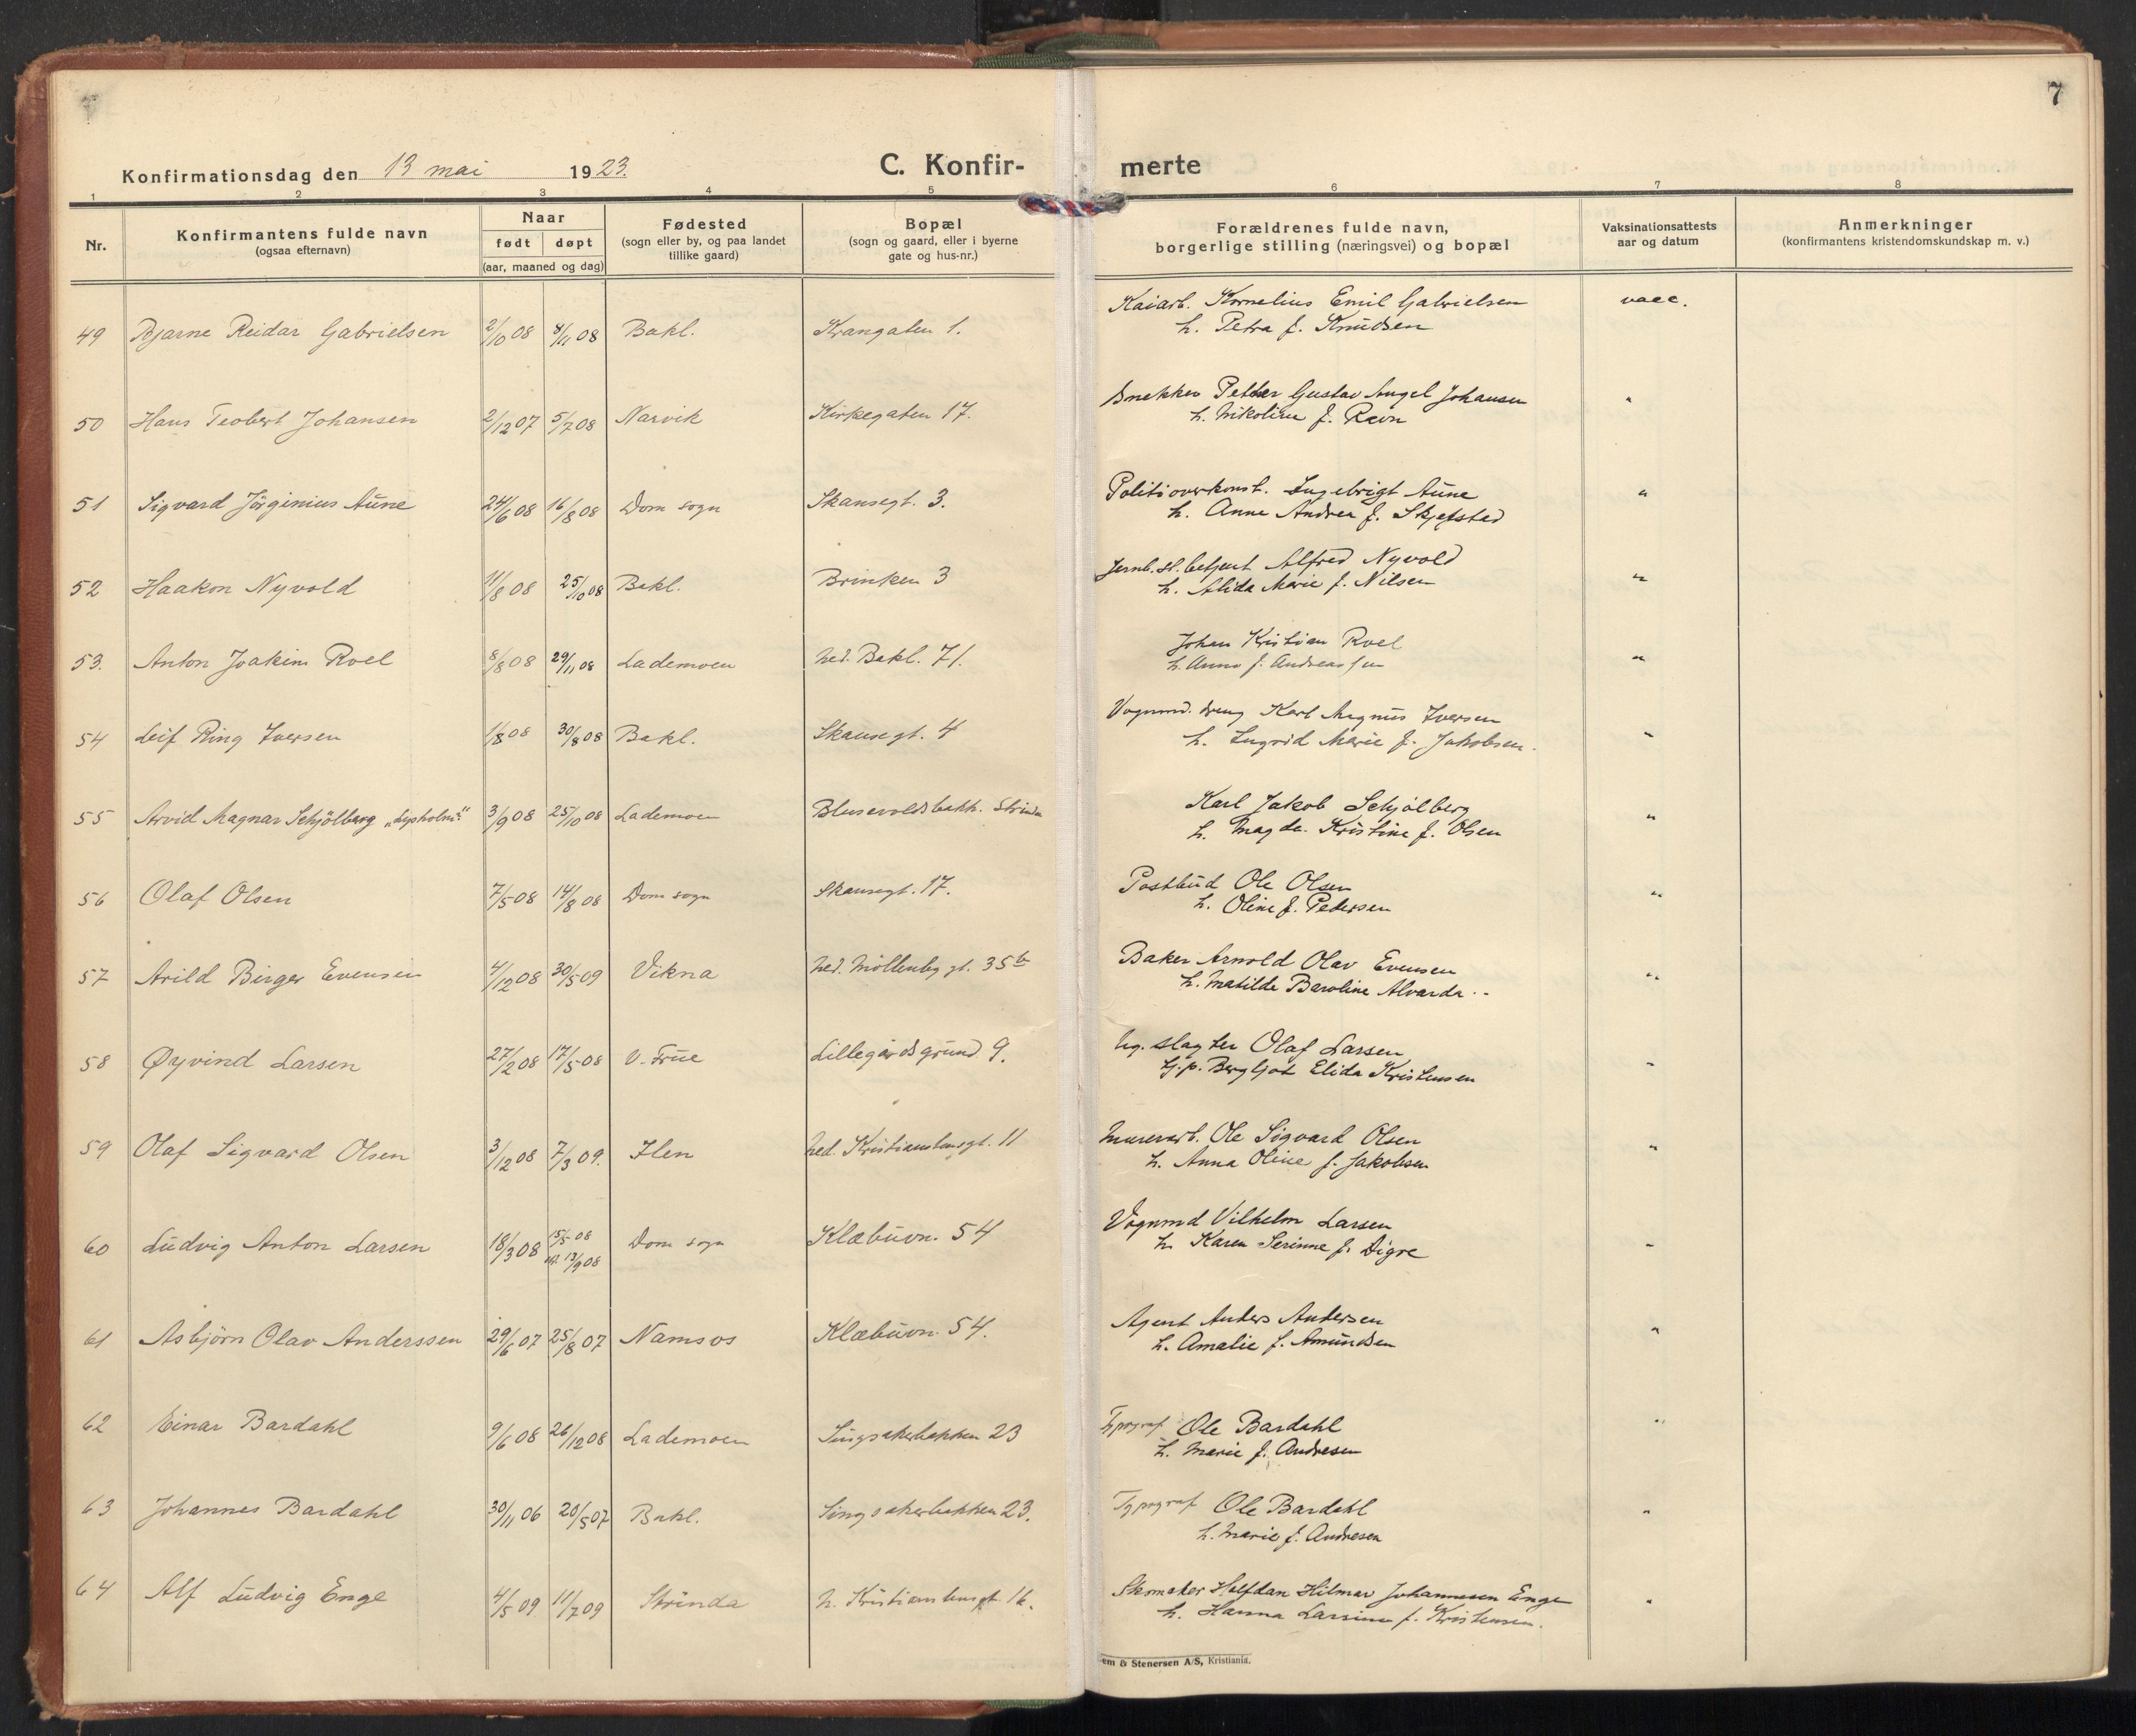 7
Konfirmationsdag den 13 mai 1923.
C. Konfir-
merte
1 2 3 4 5 6 7 8
Nr.
Konfirmantens fulde navn
(ogsaa efternavn)
Naar
født døpt
(aar, maaned og dag)
Fødested
(sogn eller by, og paa landet
tillike gaard)
Bopæl
(sogn og gaard, eller i byerne
gate og hus-nr.)
Forældrenes fulde navn,
borgerlige stilling (næringsvei) og bopæl
Vaksinationsattests
aar og datum
Anmerkninger
(konfirmantens kristendomskundskap m. v.)
49 Bjarne Reidar Gabrielsen 2/10 08 8/11 08 Bakl. Krangaten 1. Kaiarb. Kornelius Emil Gabrielsen vacc.
h. Petra f. Knudsen
50 Hans Teobert Johansen 2/12 07 5/7 08 Narvik Kirkegaten 17. Snekker Petter Gustav Angel Johansen "
h. Nikoline f. Ravn
51 Sigvard Jörginius Aune 24/6 08 16/8 08 Dom sogn Skansegt. 3. Politioverkonst. Ingebrigt Aune "
h. Anna Andrea f. Skjefstad
52 Haakon Nyvold 11/8 08 25/10 08 Bakl. Brinken 3 Jernb. st. betjent Alfred Nyvold "
h. Alida Marie f. Nilsen
53. Anton Joakim Roel 8/8 08 29/11 08 Lademoen ned. Bakl. 71. Johan Kristian Roel "
h. Anna f. Andreassen
54 Leif Ring Iversen 1/8 08 30/8 08 Bakl. Skansegt. 4 Vognmd. dreng Karl Magnus Iversen "
h. Ingrid Marie f. Jakobsen.
55 Arvid Magnar Schjölberg „Lysholm" 3/9 08 25/10 08 Lademoen Blusevoldsbakk. Strinda Karl Jakob Schjölberg "
h. Magda Kristine f. Olsen
56 Olaf Olsen 7/5 08 14/8 08 Dom sogn Skansegt. 17. Postbud Ole Olsen "
h. Oline f. Pedersen
57 Arild Birger Evensen 4/12 08 30/5 09 Vikna ned. Möllenbg gt. 35b Baker Arnold Olav Evensen "
h. Matilde Baroline Alvarda
58 Øyvind Larsen 27/2 08 17/5 08 V. Frue Lillegårdsgrund 9. Ug. slagter Olaf Larsen "
Tj.p. Bergljot Elida Kristensen
59 Olaf Sigvard Olsen 3/12 08 7/3 09. Ilen ned. Kristianstensgt. 11 Murerarb. Ole Sigvard Olsen "
h. Anna Oline f. Jakobsen
60 Ludvig Anton Larsen 18/3 08 15/5 08 Dom sogn Klæbuvn. 54 Vognmd Vilhelm Larsen "
13/9 08 h. Karen Serinne f. Digre
61 Asbjörn Olav Anderssen 29/6 07 25/8 07 Namsos Klæbuvn. 54. Agent Anders Andersen "
h. Amalie f. Amundsen
62 Einar Bardahl 9/6 08 26/12 08 Lademoen Singsakerbakken 23 Typograf Ole Bardahl "
h. Marie f. Andresen
63 Johannes Bardahl 30/11 06 20/5 07 Bakl. Singsakerbakken 23. Typograf Ole Bardahl "
h. Marie f. Andresen
64 Alf Ludvig Enge 4/5 09 11/7 09 Strinda n. Kristianstensgt. 16. Skomaker Halfdan Hilmar Johannesen Enge "
h. Hanna Larsine f. Kristensen.
em & Stenersen A/S, Kristiania.